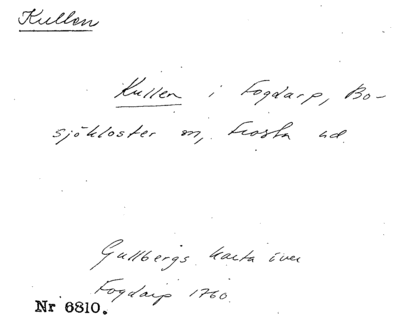 Kullen
Kullen i Fogdarp, Bo-
sjökloster sn, Frosta hd.
Gullbergs karta över
Fogdarp 1760.
Nr 6810.